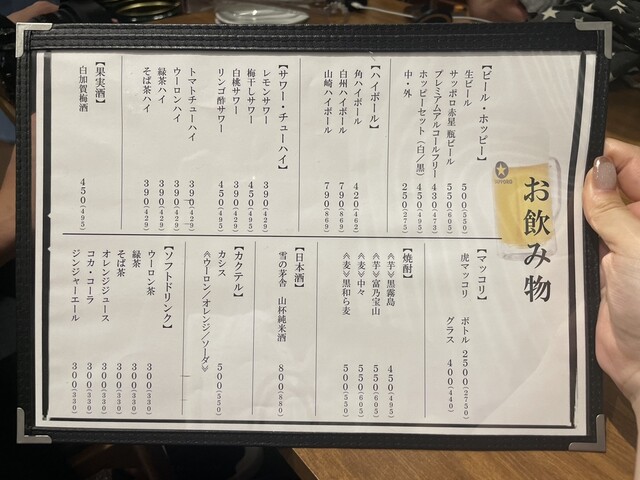 お飲み物
SAPPORO
【ビール・ホッピー】
生ビール 500(550)
サッポロ赤星 瓶ビール 550(605)
プレミアムアルコールフリー 430(473)
ホッピーセット(白/黒) 450(495)
中・外 250(275)
【ハイボール】
角ハイボール 420(462)
白州ハイボール 790(869)
山崎ハイボール 790(869)
【サワー・チューハイ】
レモンサワー 390(429)
梅干しサワー 450(495)
白桃サワー 390(429)
リンゴ酢サワー 450(495)
トマトチューハイ 390(429)
ウーロンハイ 390(429)
緑茶ハイ 390(429)
そば茶ハイ 390(429)
【果実酒】
白加賀梅酒 450(495)
【マッコリ】
虎マッコリ ボトル 2500(2750)
グラス 400(440)
【焼酎】
≪芋≫黒霧島 450(495)
≪芋≫富乃宝山 550(605)
≪麦≫中々 550(605)
≪麦≫黒和ら麦 500(550)
【日本酒】
雪の茅舎 山杯純米酒 800(880)
【カクテル】
カシス 500(550)
≪ウーロン/オレンジ/ソーダ≫
【ソフトドリンク】
ウーロン茶 300(330)
緑茶 300(330)
そば茶 300(330)
オレンジジュース 300(330)
コカ・コーラ 300(330)
ジンジャーエール 300(330)